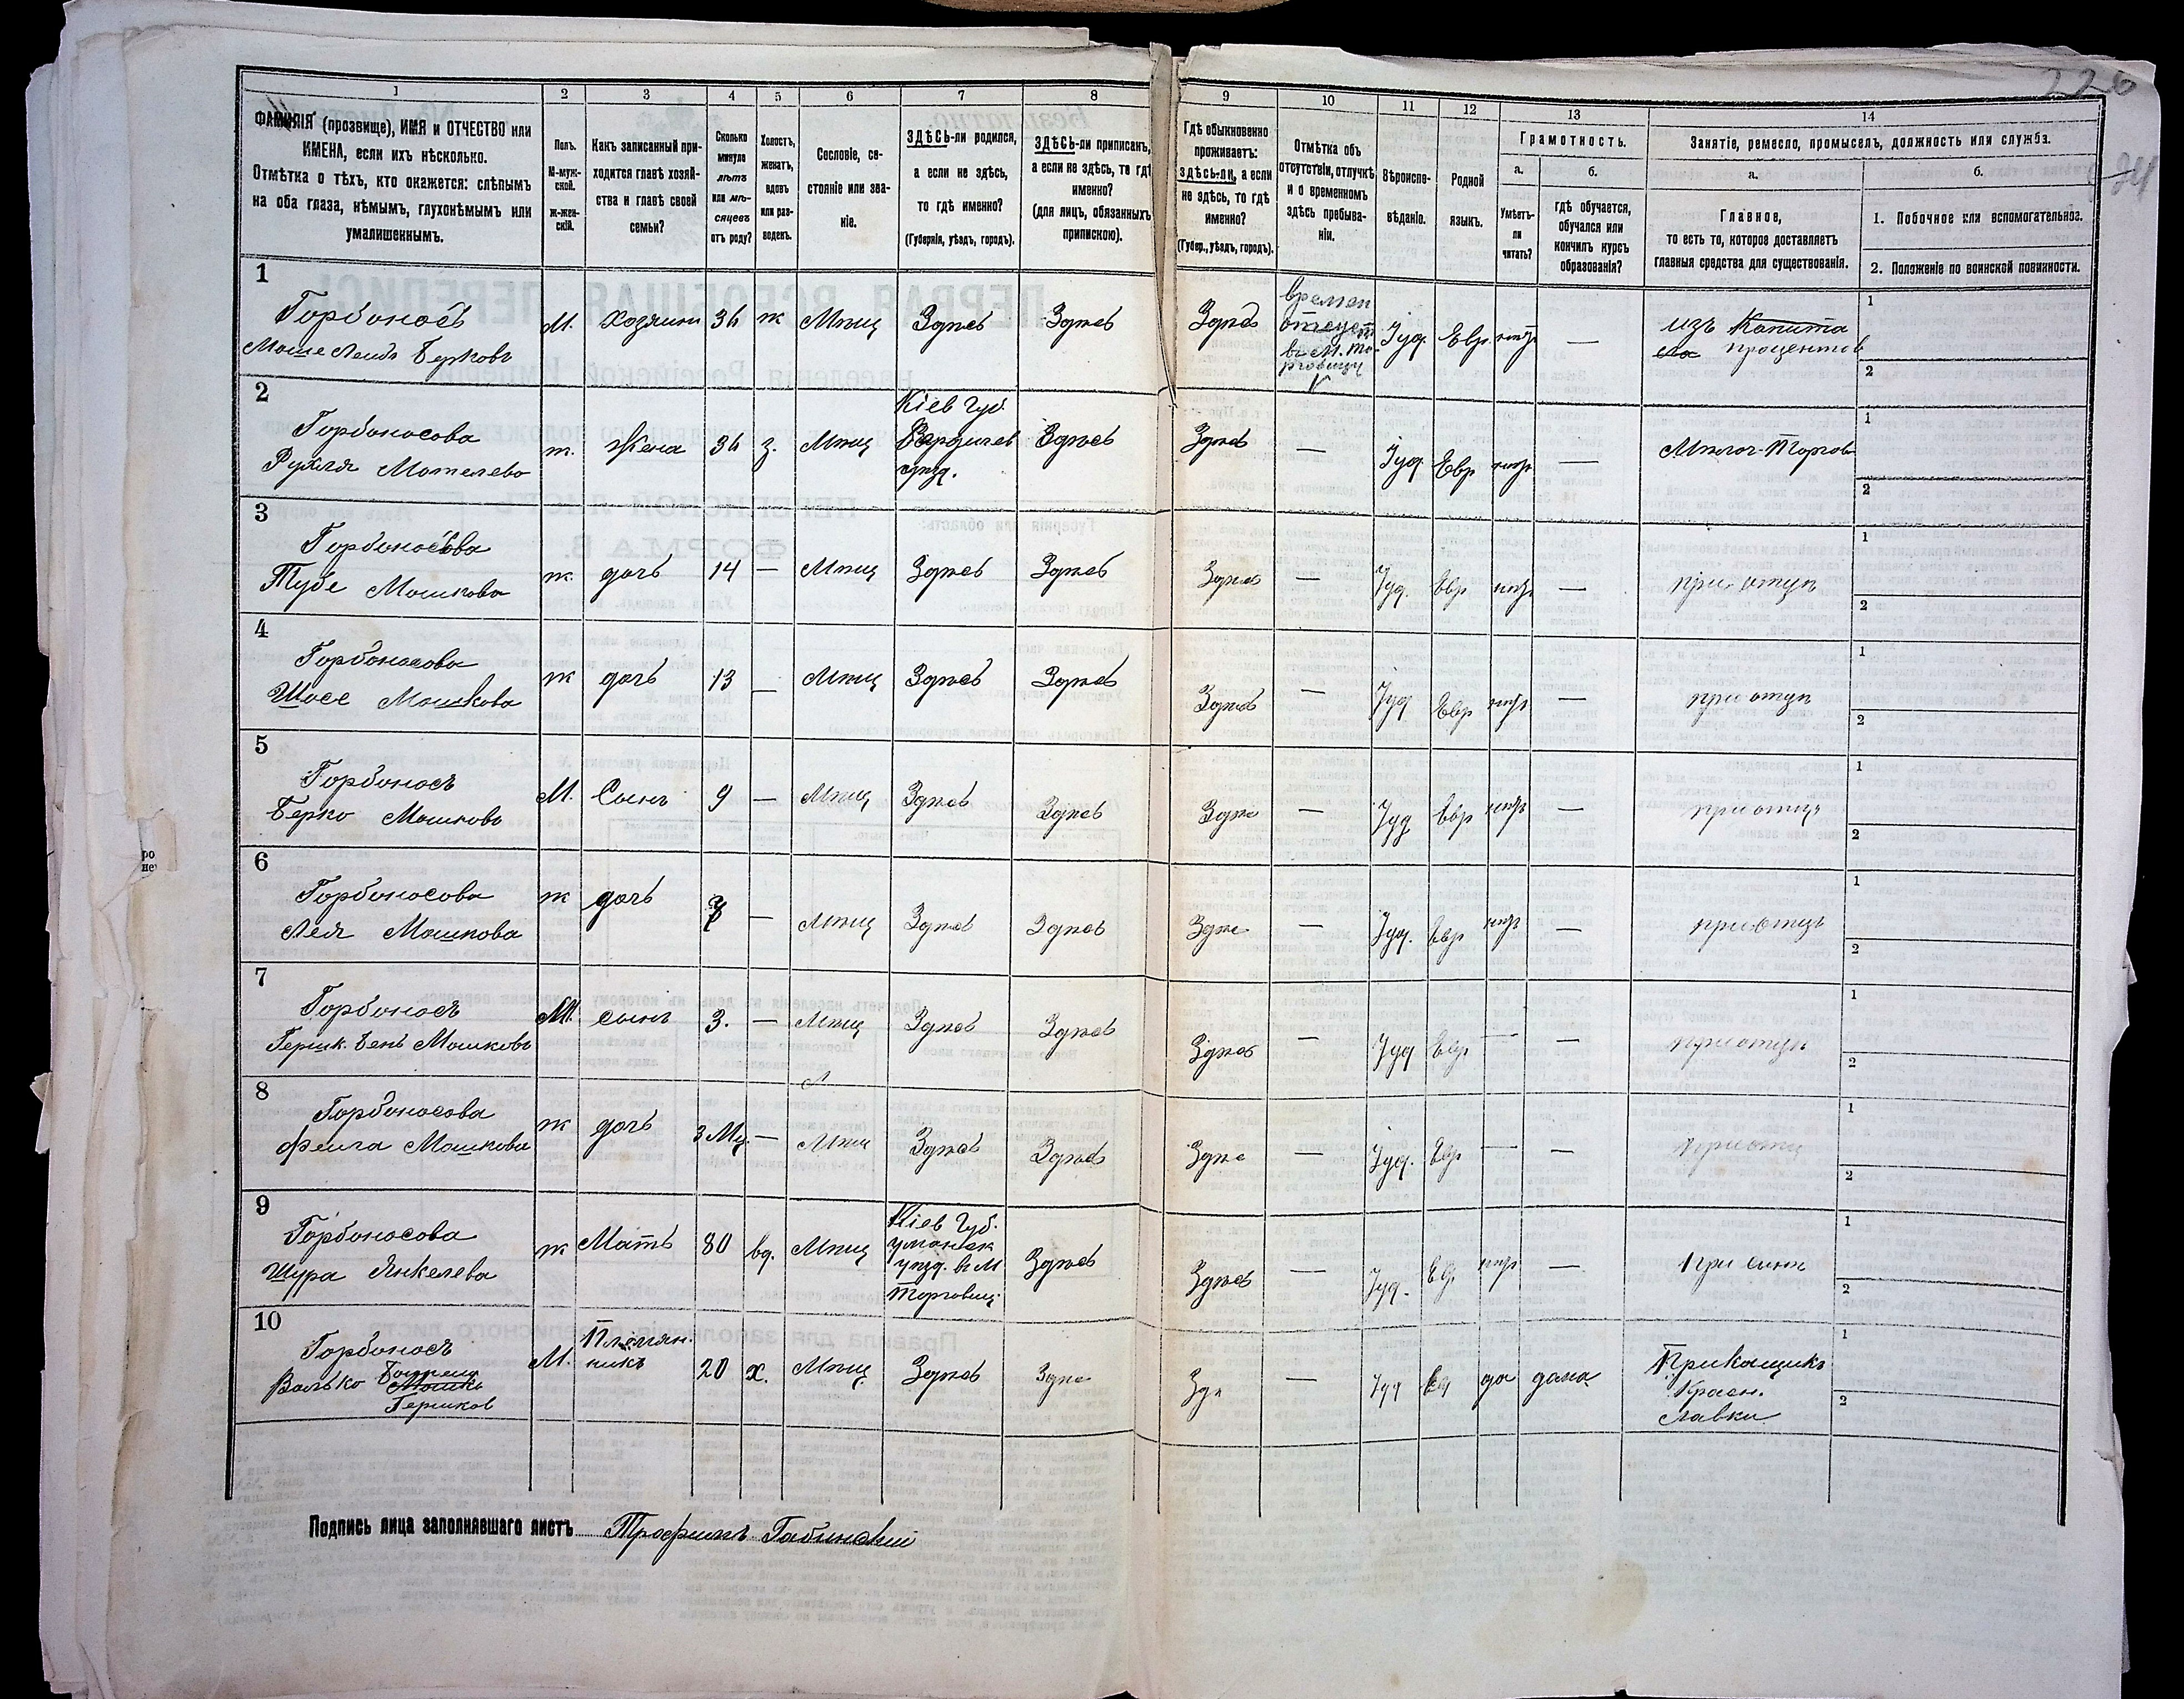 226
24
1
ФАМИЛІЯ (прозвище), ИМЯ и ОТЧЕСТВО или
ИМЕНА, если ихъ нѣсколько.
Отмѣтка о тѣхъ, кто окажется: слѣпымъ
на оба глаза, нѣмымъ, глухонѣмымъ или
умалишеннымъ.
2
Полъ.
М-муж-
ской.
Ж-жен-
скій.
3
Какъ записанный при-
ходится главѣ хозяй-
ства и главѣ своей
семьи?
4
Сколько
минуло
лѣтъ
или мѣ-
сяцевъ
отъ роду?
5
Холостъ,
женатъ,
вдовъ
или раз-
веденъ.
6
Сословіе, со-
стояніе или зва-
ніе.
7
ЗДѢСЬ-ли родился,
а если не здѣсь,
то гдѣ именно?
(Губернія, уѣздъ, городъ).
8
ЗДѢСЬ-ли приписанъ,
а если не здѣсь, то гдѣ
именно?
(для лицъ, обязанныхъ
припискою).
9
Гдѣ обыкновенно
проживаетъ:
здѣсь-ли, а если
не здѣсь, то гдѣ
именно?
(Губер., уѣздъ, городъ).
10
Отмѣтка объ
отсутствіи, отлучкѣ
и о временномъ
здѣсь пребыва-
ніи.
11
Вѣроиспо-
вѣданіе.
12
Родной
языкъ.
13
Грамотность.
а.
Умѣетъ-
ли
читать?
б.
гдѣ обучается,
обучался или
кончилъ курсъ
образованія?
14
Занятіе, ремесло, промыселъ, должность или служба.
а.
Главное,
то есть то, которое доставляетъ
главныя средства для существованія.
б.
1. Побочное или вспомогательное.
2. Положеніе по воинской повинности.
1
Горбоносъ
Моше Лейб Берковъ
М. Хозяинъ 36 ж Мѣщ Здѣсь Здѣсь Здѣсь
времен
отсут
в М. То-
рговицу
Іуд. Евр. нѣтъ —
изъ Капита
ла процентов
1
2
2
Горбоносова
Рухля Мотелева
ж. Жена 36 з. Мѣщ
Кіев Губ.
Бердичев
уѣзд.
Здѣсь Здѣсь — Іуд. Евр нѣтъ — Мѣлоч Торгов
1
2
3
Горбоносова
Тубе Мошкова
ж. дочь 14 — Мѣщ Здѣсь Здѣсь Здѣсь — Іуд. Евр нѣтъ — при отцѣ
1
2
4
Горбоносова
Шосе Мошкова
ж дочь 13 — Мѣщ Здѣсь Здѣсь Здѣсь — Іуд Евр нѣтъ — при отцѣ
1
2
5
Горбоносъ
Берко Мошковъ
М. Сынъ 9 — Мѣщ Здѣсь Здѣсь Здѣс — Іуд Евр нѣтъ — при отцѣ
1
2
6
Горбоносова
Лея Мошкова
ж дочь — Мѣщ Здѣсь Здѣсь Здѣс — Іуд. Евр нѣтъ — при отцѣ
1
2
7
Горбоносъ
Гершк. Бень Мошковъ
М. сынъ 3. — Мѣщ Здѣсь Здѣсь Здѣсь — Іуд Евр. — — при отцѣ
1
2
8
Горбоносова
Фейга Мошкова
ж дочь 3 Мц. — Мѣщ Здѣсь Здѣсь Здѣс — Іуд. Евр — — при отц
1
2
9
Горбоносова
Шура Янкелева
ж Мать 80 вд. Мѣщ
Кіев Губ.
уманск
уѣзд. в М
Торговиц.
Здѣсь Здѣсь — Іуд. Ев. нѣтъ — При сынѣ
1
2
10
Горбоносъ
Волько
Мошко
Гершков
М.
Племян.
никъ
20 х. Мѣщ. Здѣсь Здѣс Зд — Іуд Ев да дома
Прикащикъ
Красн.
лавки
1
2
Подпись лица заполнявшаго листъ Трофимъ Габинскій